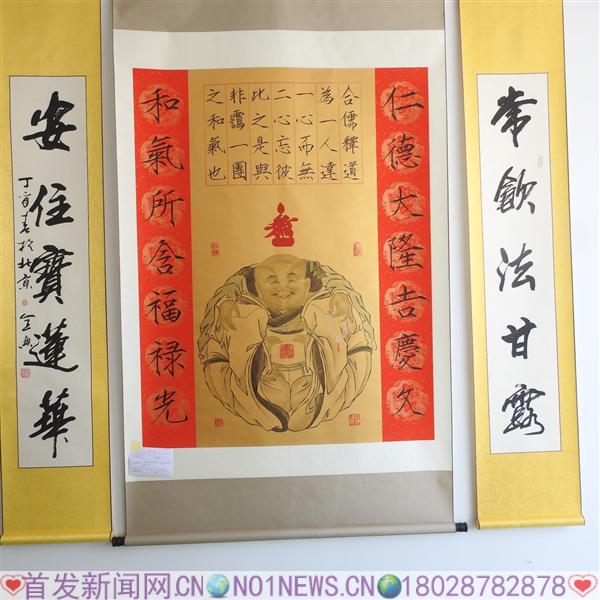 常飲法甘露
仁德大隆吉慶久
合儒釋道
為一人達
一心而無
二心忘彼
此之是與
非靄一團
之和氣也
和氣所含福禄光
安住寶蓮華
丁酉春於北京
首发新闻网.CN NO1NEWS.CN 18028782878